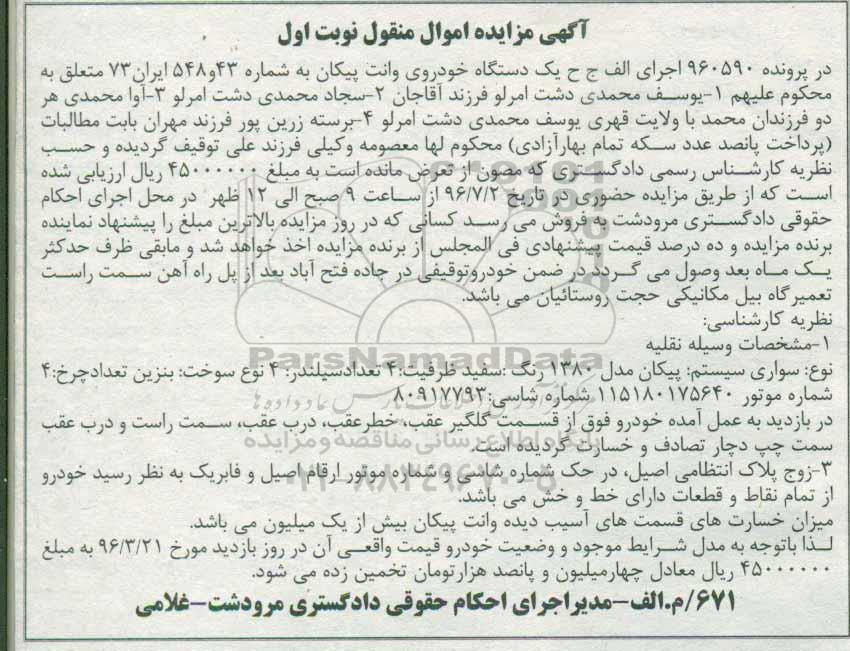 آگهی مزایده اموال منقول نوبت اول
در پرونده ۹۶۰۵۹۰ اجرای الف ج ح یک دستگاه خودروی وانت پیکان به شماره ۴۳و۵۴۸ ایران۷۳ متعلق به
محکوم علیهم ۱-یوسف محمدی دشت امرلو فرزند آقاجان ۲-سجاد محمدی دشت امرلو ۳-آوا محمدی هر
دو فرزندان محمد با ولایت قهری یوسف محمدی دشت امرلو ۴-برسته زرین پور فرزند مهران بابت مطالبات
(پرداخت پانصد عدد سکه تمام بهارآزادی) محکوم لها معصومه وکیلی فرزند علی توقیف گردیده و حسب
نظریه کارشناس رسمی دادگستری که مصون از تعرض مانده است به مبلغ ۴۵۰۰۰۰۰۰ ریال ارزیابی شده
است که از طریق مزایده حضوری در تاریخ ۹۶/۷/۲ از ساعت ۹ صبح الی ۱۲ ظهر در محل اجرای احکام
حقوقی دادگستری مرودشت به فروش می رسد کسانی که در روز مزایده بالاترین مبلغ را پیشنهاد نماینده
برنده مزایده و ده درصد قیمت پیشنهادی فی المجلس از برنده مزایده اخذ خواهد شد و مابقی ظرف حدکثر
یک ماه بعد وصول می گردد در ضمن خودروتوقیفی در جاده فتح آباد بعد از پل راه آهن سمت راست
تعمیرگاه بیل مکانیکی حجت روستائیان می باشد.
نظریه کارشناسی:
۱-مشخصات وسیله نقلیه
نوع: سواری سیستم: پیکان مدل ۱۳۸۰ رنگ :سفید ظرفیت:۴ تعدادسیلندر: ۴ نوع سوخت: بنزین تعدادچرخ:۴
شماره موتور ۱۱۵۱۸۰۱۷۵۶۴۰ شماره شاسی:۸۰۹۱۷۷۹۳
در بازدید به عمل آمده خودرو فوق از قسمت گلگیر عقب، خطرعقب، درب عقب، سمت راست و درب عقب
سمت چپ دچار تصادف و خسارت گردیده است.
۳-زوج پلاک انتظامی اصیل، در حک شماره شاسی و شماره موتور ارقام اصیل و فابریک به نظر رسید خودرو
از تمام نقاط و قطعات دارای خط و خش می باشد.
میزان خسارت های قسمت های آسیب دیده وانت پیکان بیش از یک میلیون می باشد.
لذا باتوجه به مدل شرایط موجود و وضعیت خودرو قیمت واقعی آن در روز بازدید مورخ ۹۶/۳/۲۱ به مبلغ
۴۵۰۰۰۰۰۰ ریال معادل چهارمیلیون و پانصد هزارتومان تخمین زده می شود.
۶۷۱/م.الف-مدیراجرای احکام حقوقی دادگستری مرودشت-غلامی
ParsNamadData
پایگاه اطلاع رسانی مناقصه و مزایده
۰۲۱-۸۸۳۴۹۶۷۰-۵